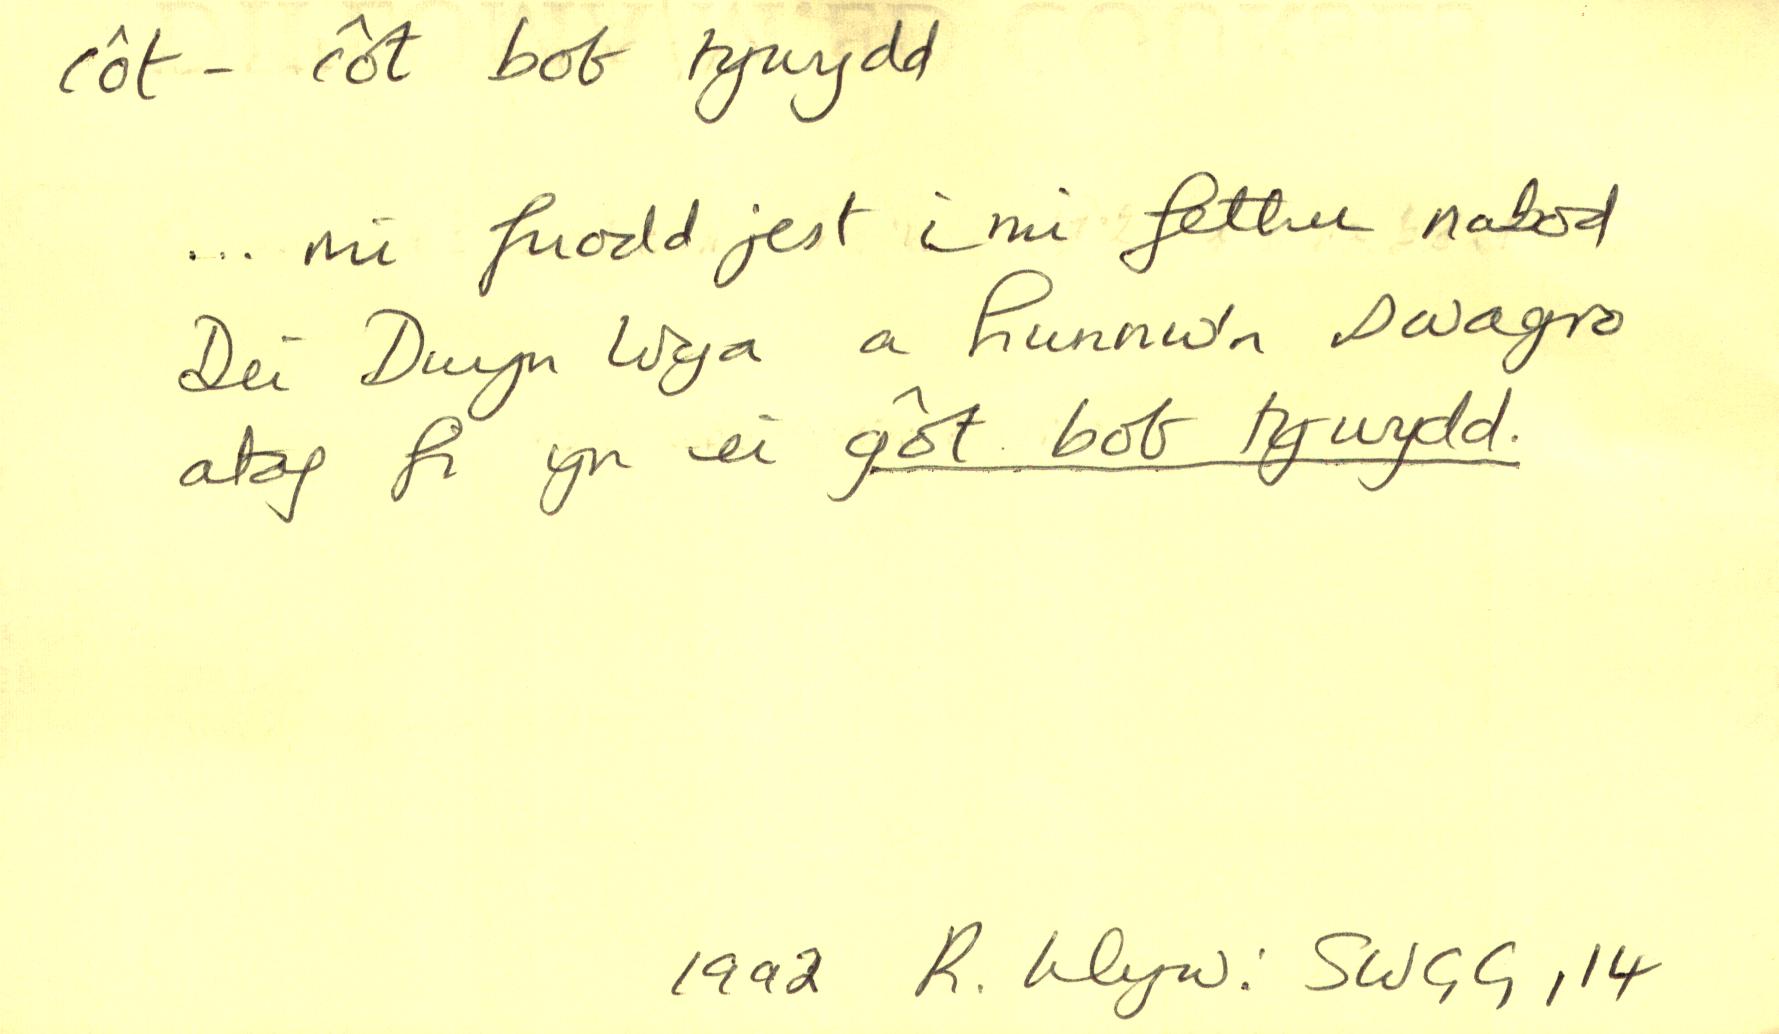 côt - côt bob tywydd
... mi fuodd jest i mi fethu nabod
Dei Dwyn Wya a hunnw'n swagro
ataf fi yn ei gôt bob tywydd.
1992 R. Wlyw: SWGG, 14